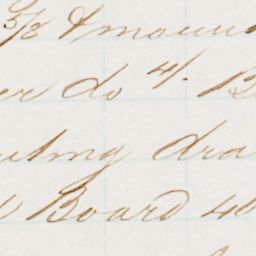 5/8 & moun
er do 4/. B
uting dra
Board 40